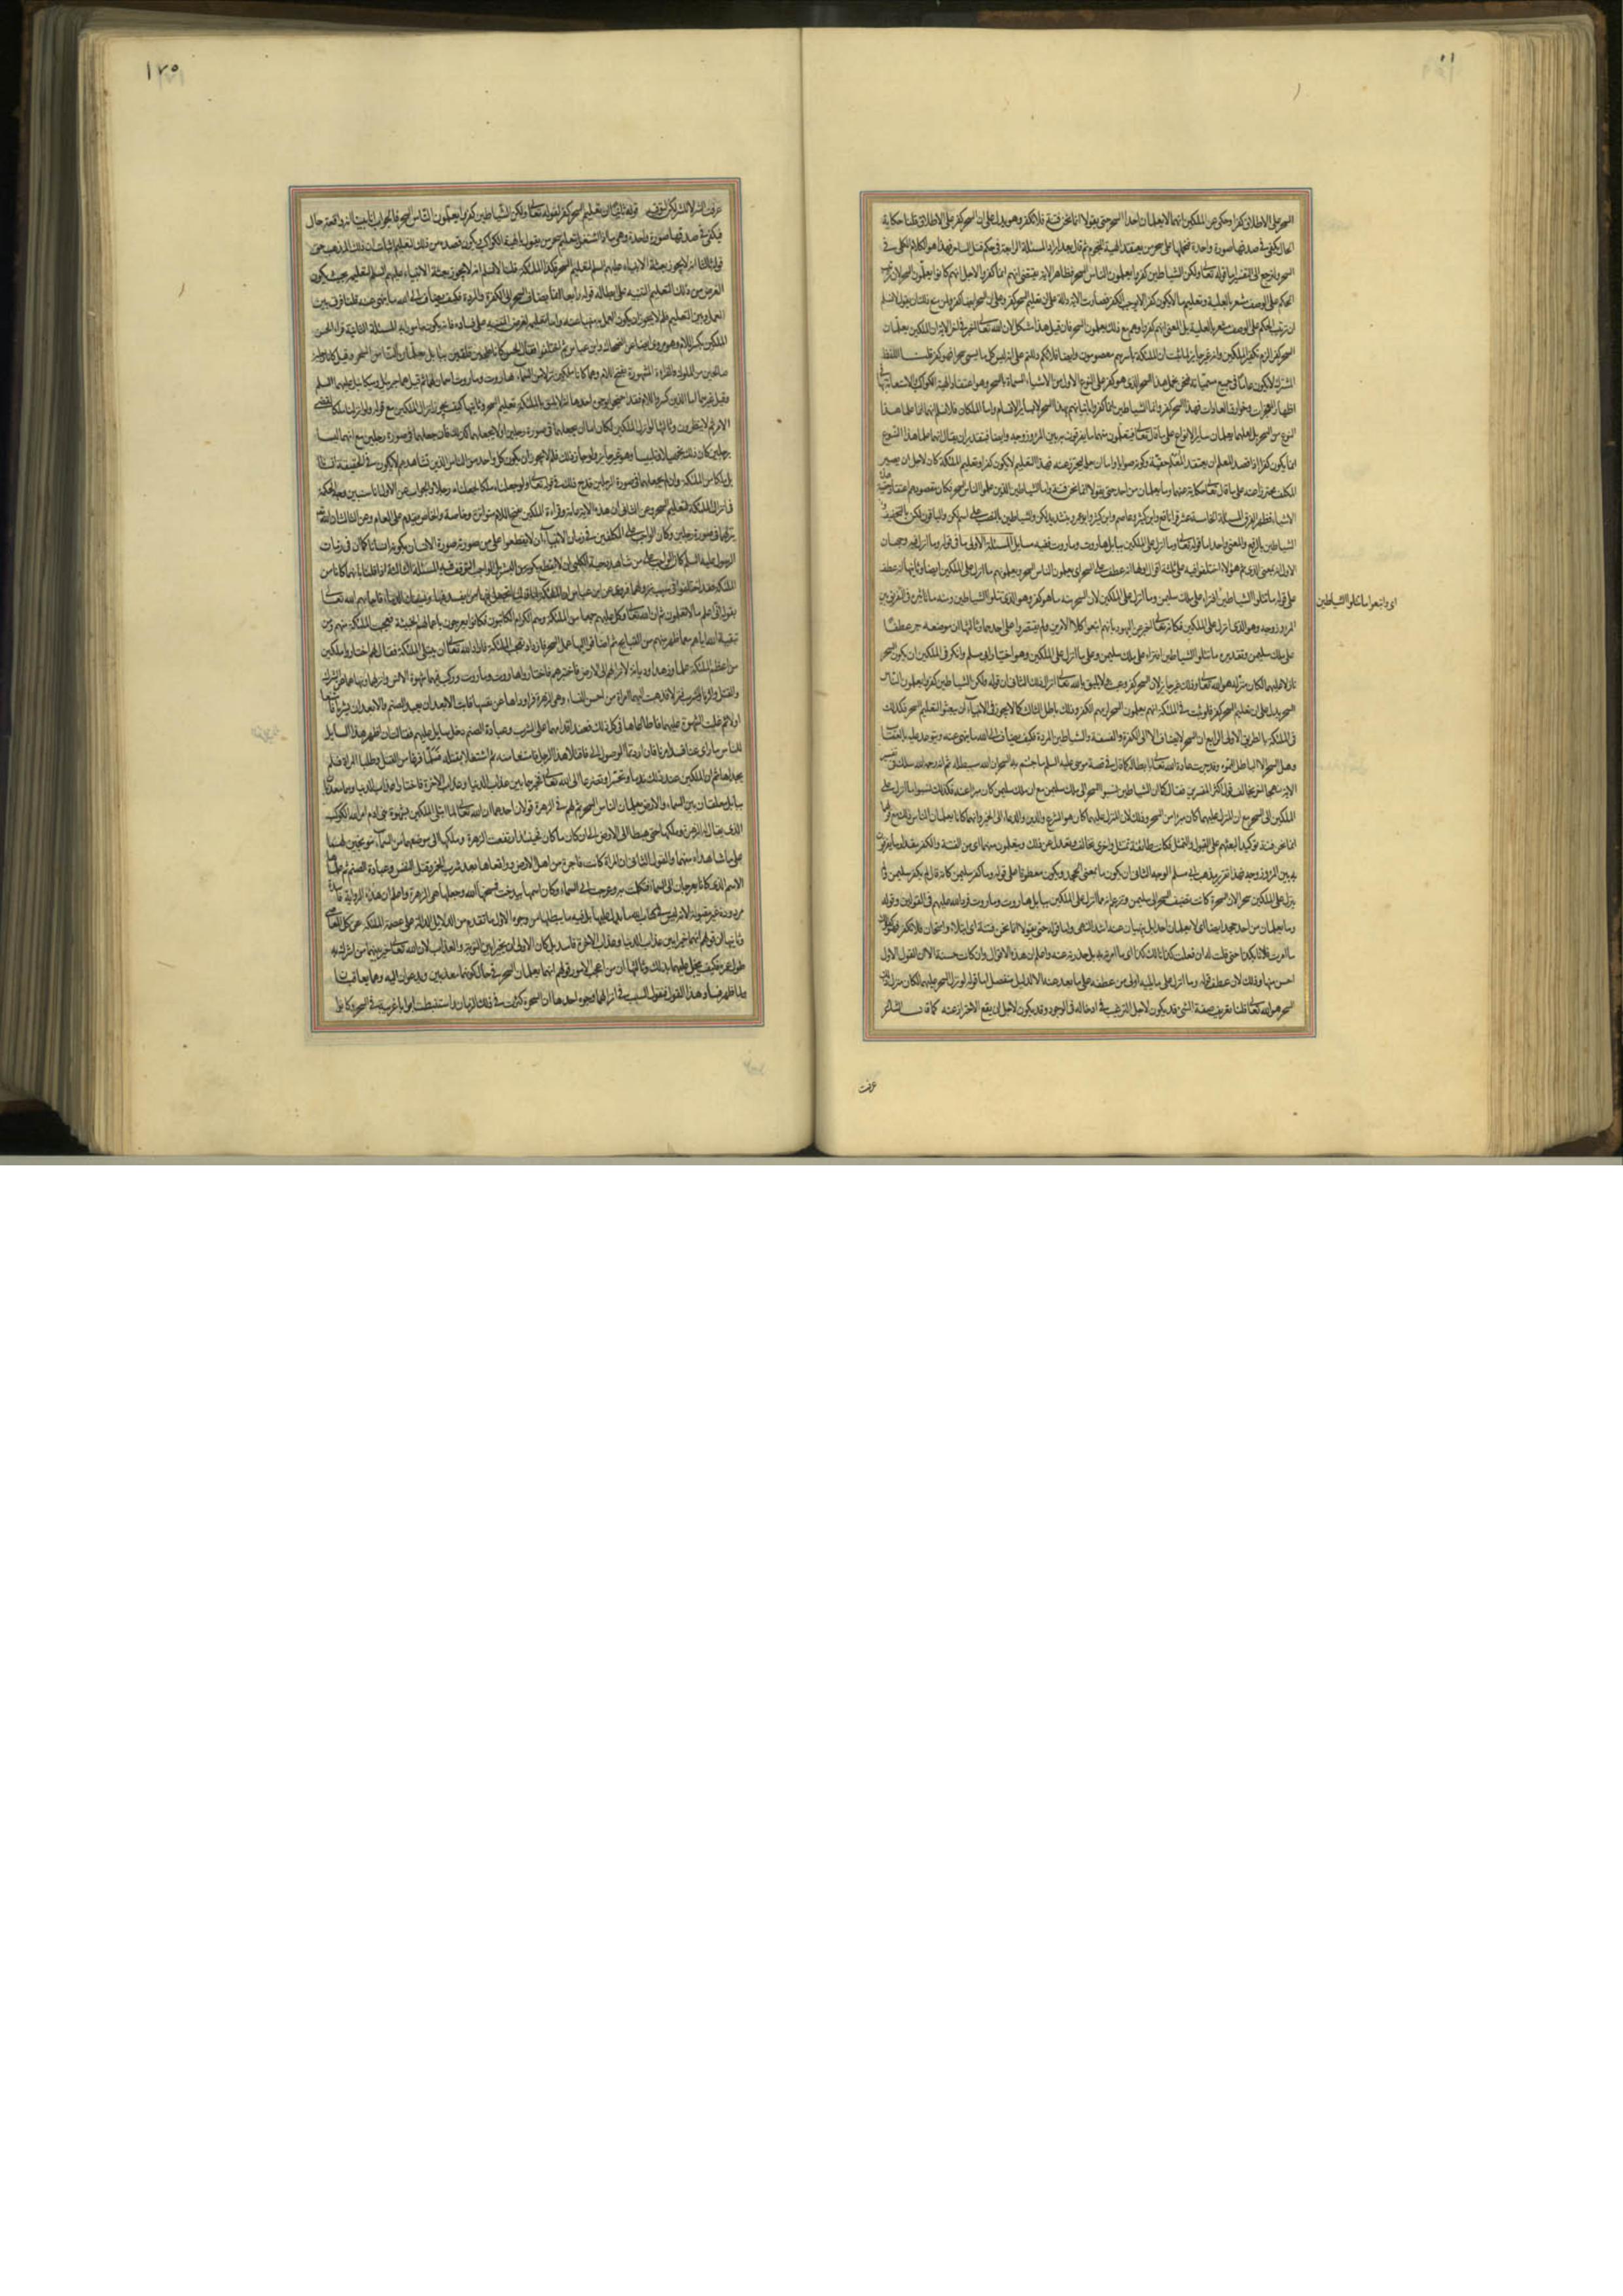 السحر على الاطلاق كفرا وحكى عن الملكين انهما لا يعلمان احدا السحر حتى يقولا انما نحن فتنة فلا تكفر وهو يدل على ان السحر كفر على الاطلاق قلنا حكاية
الحال يكفى فى صدقها صورة واحدة فنحملها على سحر من يعتقد الهية النجوم
السحر ولنرجع الى التفسير اما قوله تعالى ولكن الشياطين كفروا يعلمون الناس السحر فظاهر الاية يقتضى انهم انما كفروا لاجل انهم كانوا يعلمون السحر لان ترتيب
الحكم على الوصف مشعر بالعلية وتعليم ما لا يكون كفرا لا يوجب الكفر فصارت الاية دالة على ان تعليم السحر كفر وعلى ان السحر ايضا كفر ولمن منع ذلك ان يقول لا نسلم
ان ترتيب الحكم على الوصف مشعر بالعلية بل المعنى انهم كفروا وهم مع ذلك يعلمون السحر فان قيل هذا مشكل لان الله تعالى اخبر فى اخر الاية ان الملكين يعلمان
السحر كفرا لزم تكفير الملكين وانه غير جايز لما ثبت ان الملئكة باسرهم معصومون وايضا فلانكم دللتم على انه ليس كل ما يسمى سحرا فهو كفر قلنا اللفظ
المشترك لا يكون عاما فى جميع مسمياته فنحن نحمل هذا السحر الذى هو كفر على النوع الاول من الاشياء المسماة بالسحر وهو اعتقاد الهية الكواكب والاستعانة بها فى
اظهار المعجزات وخوارق العادات فهذا السحر كفر وانما الشياطين انما كفروا لاتيانهم بهذا السحر لا بساير الاقسام واما الملكان فلا نسلم انهما علما هذا
النوع من السحر بل لعلهما يعلمان ساير الانواع على ما قال تعالى فيتعلمون منهما ما يفرقون به بين المرء وزوجه وايضا فبتقدير ان يقال انهما علما هذا النوع
انما يكون كفرا اذا قصد المعلم ان يعتقد المتعلم حقيته وكونه صوابا واما ان يعلمه ليحترز عنه فهذا التعليم لا يكون كفرا وتعليم الملئكة كان لاجل ان يصير
المكلف محترزا عنه على ما قال تعالى حكاية عنهما وما يعلمان من احد حتى يقولا انما نحن فتنة واما الشياطين الذين علموا الناس السحر فكان مقصودهم اعتقاد حقية هذه
الاشياء فظهر الفرق المسئلة الخامسة عشر قرا نافع وابن كثير وعاصم وابوعمرو بتشديد لكن والشياطين بالنصب على انه اسم لكن والباقون لكن بالتخفيف و
الشياطين بالرفع والمعنى واحد اما قوله تعالى وما انزل على الملكين ببابل هاروت وماروت ففيه مسايل المسئلة الاولى ما فى قوله وما انزل فيه وجهان
الاول انه بمعنى الذى ثم هؤلاء اختلفوا فيه على ثلثة اقوال اولها انه عطف على السحر اى يعلمون الناس السحر ويعلمونهم ما انزل على الملكين ايضا وثانيها انه عطف
على قوله ما تتلوا الشياطين افتراء على ملك سليمن وما انزل على الملكين لان السحر منه ما هو كفر وهو الذى تتلوا الشياطين ومنه ما تاثيره فى التفريق بين
المرء وزوجه وهو الذى انزل على الملكين فكانه تعالى اخبر عن اليهود بانهم اتبعوا كلا الامرين ولم يقتصروا على احدهما وثالثها ان موضعه جر عطفا
على ملك سليمن وتقديره ما تتلوا الشياطين افتراء على ملك سليمن وعلى ما انزل على الملكين وهو اختيار ابى مسلم وانكر فى الملكين ان يكون السحر
نازلا عليهما
السحر يدل على ان تعليم السحر كفر فلو ثبت فى الملئكة انهم يعلمون السحر لزمهم الكفر وذلك باطل الثالث كما لا يجوز فى الانبياء ان يبعثوا لتعليم السحر فكذلك
فى الملئكة بالطريق الاولى الرابع ان السحر لا يضاف الا الى الكفرة والفسقة والشياطين المردة فكيف يضاف الى الله ما ينهى عنه ويتوعد عليه بالعقاب
وهل السحر الا الباطل المموه وقد جرت عادة الله تعالى بابطاله كما قال فى قصة موسى عليه السلم ما جئتم به السحر ان الله سيبطله
الاية نهجا اخر يخالف قول اكثر المفسرين فقال كما ان الشياطين نسبوا السحر الى ملك سليمن مع ان ملك سليمن كان مبرا عنه فكذلك نسبوا ما انزل على
الملكين الى السحر مع ان المنزل عليهما كان مبرا من السحر وذلك لان المنزل عليهما كان هو الشرع والدين والدعاء الى الخير وانهما كانا يعلمان الناس ذلك مع قولهما
انما نحن فتنة توكيدا لبعثهم على القبول والتمسك فكانت طايفة تتمسك واخرى تخالف وتعدل عن ذلك ويتعلمون منهما اى من الفتنة والكفر مقدار ما يفرقون
به بين المرء وزوجه فهذا تقرير مذهب ابى مسلم الوجه الثانى ان يكون ما بمعنى الجحد ويكون معطوفا على قوله وما كفر سليمن كانه قال لم يكفر سليمن ولم
ينزل على الملكين سحر لان السحرة كانت تضيف السحر الى سليمن وتزعم انه مما انزل على الملكين ببابل هاروت وماروت فرد الله عليهم فى القولين وقوله
وما يعلمان من احد جحد ايضا اى لا يعلمان احدا بل ينهيان عنه اشد النهى واما قوله حتى يقولا انما نحن فتنة اى ابتلاء وامتحان فلا تكفر
ما امرت فلانا بكذا حتى قلت له ان فعلت كذا نالك كذا اى ما امرته به بل حذرته عنه واعلم ان هذه الاقوال وان كانت حسنة الا ان القول الاول
احسن منها وذلك لان عطف قوله وما انزل على ما يليه اولى من عطفه على ما بعد عنه الا لدليل منفصل اما قوله لو نزل السحر عليهما لكان منزل ذلك
السحر هو الله تعالى قلنا تعريف صفة الشئ قد يكون لاجل الترغيب فى ادخاله فى الوجود وقد يكون لاجل ان يقع الاحتراز عنه كما قال الشاعر
اى واتبعوا ما تتلو الشياطين
عرفت
١٧٥
عرفت الشر لا للشر لكن لتوقيه قوله ثانيا ان تعليم السحر كفر لقوله تعالى ولكن الشياطين كفروا يعلمون الناس السحر فالجواب انا بينا انه واقعة حال
فيكفى فى صدقها صورة واحدة وهى ما اذا اشتغل بتعليم سحر من يقول بالهية الكواكب ويكون قصده من ذلك التعليم اثبات ان ذلك المذهب حق
قوله ثالثا انه لا يجوز بعثة الانبياء عليهم السلم لتعليم السحر فكذا الملئكة قلنا لا نسلم انه لا يجوز بعثة الانبياء عليهم السلم لتعليمه بحيث يكون
الغرض من ذلك التعليم التنبيه على ابطاله قوله رابعا انما يضاف السحر الى الكفرة والمردة فكيف يضاف الى الله ما ينهى عنه قلنا فرق بين
العمل وبين التعليم فلم لا يجوز ان يكون العمل به منهيا عنه واما تعليمه لغرض التنبيه على فساده فانه يكون مامورا به المسئلة الثانية قرا الحسن
الملكين بكسر اللام وهو مروى ايضا عن الضحاك وابن عباس ثم اختلفوا فقال الحسن كانا علجين اقلفين ببابل يعلمان الناس السحر وقيل كانا رجلين
صالحين من الملوك والقراءة المشهورة بفتح اللام وهما كانا ملكين نزلا من السماء هاروت وماروت اسمان لهما ثم قيل هما جبريل وميكايل عليهما السلم
وقيل غيرهما اما الذين كسروا اللام فقد احتجوا بوجوه احدها انه لا يليق بالملئكة تعليم السحر وثانيها كيف يجوز انزال الملكين مع قوله ولو انزلنا ملكا لقضى
الامر ثم لا ينظرون وثالثها لو انزل الملكين لكان اما ان يجعلهما فى صورة رجلين او لا يجعلهما كذلك فان جعلهما فى صورة رجلين مع انهما ليسا
برجلين كان ذلك تجهيلا وتلبيسا وهو غير جايز ولو جاز ذلك فلم لا يجوز ان يكون كل واحد من الناس الذين نشاهدهم لا يكون فى الحقيقة انسانا
بل ملكا من الملئكة وان لم يجعلهما فى صورة الرجلين قدح ذلك فى قوله تعالى ولو جعلناه ملكا لجعلناه رجلا والجواب عن الاول انا سنبين وجه الحكمة
فى انزال الملئكة لتعليم السحر وعن الثانى ان هذه الاية عامة وقراءة الملكين بفتح اللام متواترة وخاصة والخاص مقدم على العام وعن الثالث ان الله تعالى
انزلهما فى صورة رجلين وكان الواجب على المكلفين فى زمان الانبياء ان لا يقطعوا على من صورته صورة الانسان بكونه انسانا كما ان فى زمان
الرسول عليه السلم كان الواجب على من شاهد دحية الكلبى ان لا يقطع بكونه من البشر بل الواجب التوقف فيه المسئلة الثالثة اذا قلنا بانهما كانا من
الملئكة فقد اختلفوا فى سبب نزولهما فروى عن ابن عباس ان الملئكة لما قالت اتجعل فيها من يفسد فيها ويسفك الدماء فاجابهم الله تعالى
بقوله انى اعلم ما لا تعلمون ثم ان الله تعالى وكل عليهم جمعا من الملئكة وهم الكرام الكاتبون فكانوا يعرجون باعمالهم الخبيثة فعجبت الملئكة منهم ومن
تبقية الله اياهم مع ما ظهر منهم من القبايح ثم اضافوا اليها عمل السحر فازداد تعجب الملئكة فاراد الله تعالى ان يبتلى الملئكة فقال لهم اختاروا ملكين
من اعظم الملئكة علما وزهدا وديانة لانزلهم الى الارض فاختبرهم فاختاروا هاروت وماروت وركب فيهما شهوة الانس وانزلهما ونهاهما عن الشرك
والقتل والزنا والشرب فنزلا فذهبت اليهما امراة من احسن النساء وهى الزهرة فراوداها عن نفسها فابت الا بعد ان يعبدا الصنم والا بعد ان يشربا
اولا ثم غلبت الشهوة عليهما فاطاعاها فى كل ذلك فعند اقدامهما على الشرب وعبادة الصنم دخل سايل عليهم فقالت ان اظهر هذا السايل
للناس ما راى منا فسد امرنا فان اردتما الوصول الى فاقتلا هذا الرجل فامتنعا منه ثم اشتغلا بقتله فلما فرغا من القتل وطلبا المراة فلم
يجداها ثم ان الملكين عند ذلك ندما وتحسرا وتضرعا الى الله تعالى فخيرهما بين عذاب الدنيا وعذاب الاخرة فاختارا عذاب الدنيا وهما يعذبان
ببابل معلقان بين السماء والارض يعلمان الناس السحر ثم لهم فى الزهرة قولان احدهما ان الله تعالى لما ابتلى الملكين بشهوة بنى ادم امر الله الكوكب
الذى يقال له الزهرة وملكها حتى هبطا الى الارض الى ان كان ما كان فحينئذ ارتفعت الزهرة وملكها الى موضعهما من السماء موبخين لهما
على ما شاهداه منهما والقول الثانى ان المراة كانت فاجرة من اهل الارض وواقعاها بعد شرب الخمر وقتل النفس وعبادة الصنم ثم علماها
الاسم الذى كانا يعرجان الى السماء فتكلمت به وعرجت الى السماء وكان اسمها بيدخت فمسخها الله وجعلها هى الزهرة واعلم ان هذه الرواية فاسدة
مردودة غير مقبولة لانه ليس فى كتاب الله ما يدل عليها بل فيه ما يبطلها من وجوه الاول ما تقدم من الدلائل الدالة على عصمة الملئكة عن كل المعاصى
وثانيها ان قولهم انهما خيرا بين عذاب الدنيا وعذاب الاخرة فاسد بل كان الاولى ان يخيرا بين التوبة والعذاب لان الله تعالى خير بينهما من اشرك به
طول عمره فكيف يبخل عليهما بذلك وثالثها ان من اعجب الامور قولهم انهما يعلمان السحر فى حال كونهما معذبين ويدعوان اليه وهما يعاقبان
ولما ظهر فساد هذا القول فنقول السبب فى انزالهما وجوه احدها ان السحرة كثرت فى ذلك الزمان واستنبطت ابوابا غريبة فى السحر وكانوا